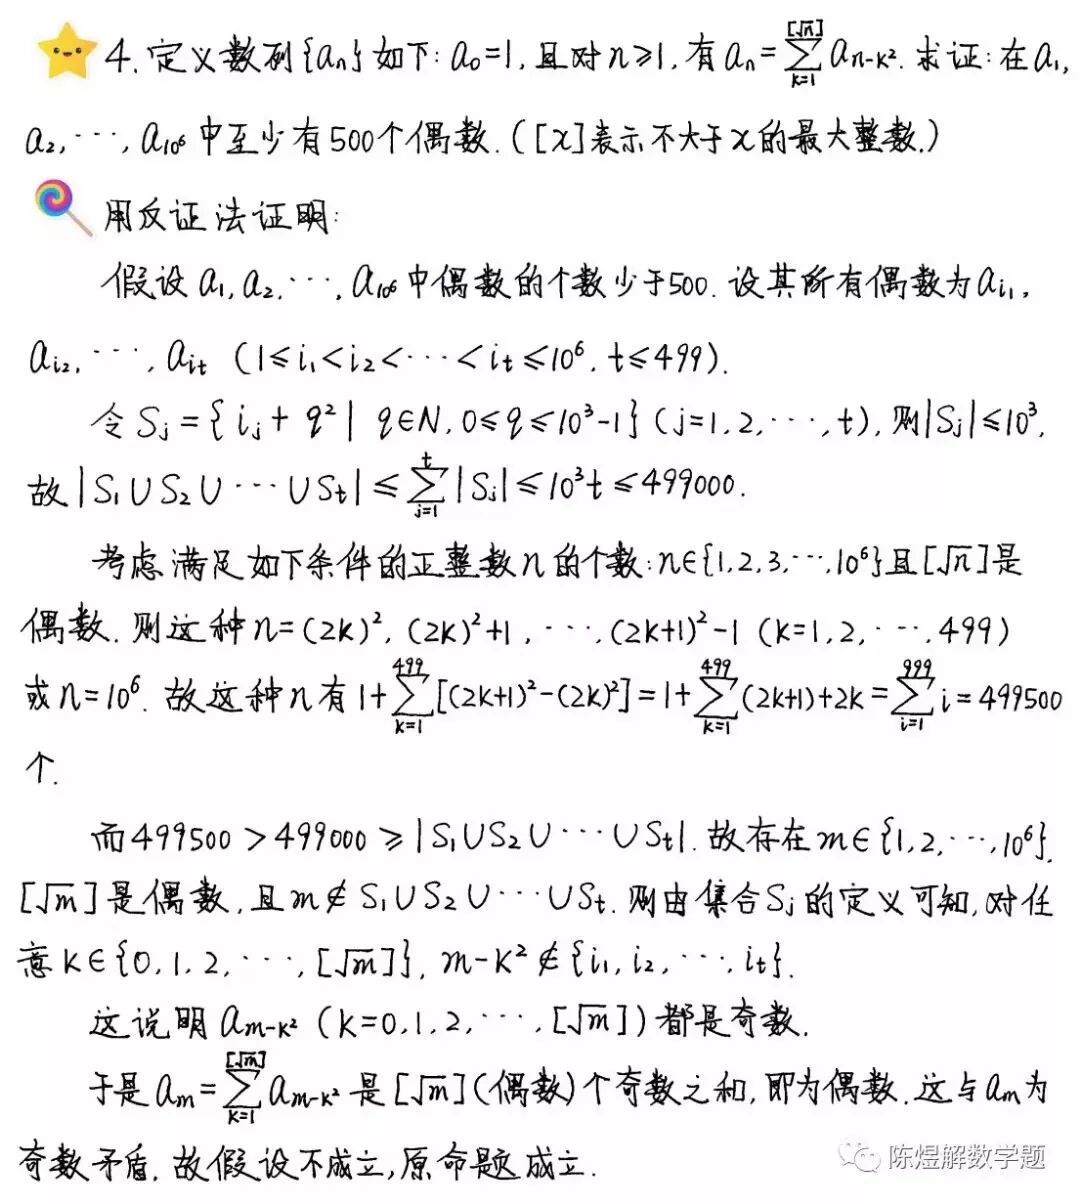 4. 定义数列{aₙ}如下: a₀=1, 且对n≥1, 有aₙ=∑_{k=1}^{[√n]} a_{n-k²}. 求证: 在a₁,
a₂, ⋯, a_{10⁶}中至少有500个偶数. ([x]表示不大于x的最大整数.)
用反证法证明:
假设a₁, a₂, ⋯, a_{10⁶}中偶数的个数少于500. 设其所有偶数为a_{i₁},
a_{i₂}, ⋯, a_{i_t} (1≤i₁<i₂<⋯<i_t≤10⁶, t≤499).
令S_j={i_j+q²|q∈N, 0≤q≤10³-1} (j=1,2,⋯,t), 则|S_j|≤10³,
故|S₁∪S₂∪⋯∪S_t|≤∑_{j=1}^{t}|S_j|≤10³t≤499000.
考虑满足如下条件的正整数n的个数: n∈{1,2,3,⋯,10⁶}且[√n]是
偶数. 则这种n=(2k)², (2k)²+1, ⋯, (2k+1)²-1 (k=1,2,⋯,499)
或n=10⁶. 故这种n有1+∑_{k=1}^{499}[(2k+1)²-(2k)²]=1+∑_{k=1}^{499}(2k+1)+2k=∑_{i=1}^{999}i=499500
个.
而499500>499000≥|S₁∪S₂∪⋯∪S_t|. 故存在m∈{1,2,⋯,10⁶},
[√m]是偶数, 且m∉S₁∪S₂∪⋯∪S_t. 则由集合S_j的定义可知, 对任
意k∈{0,1,2,⋯,[√m]}, m-k²∉{i₁,i₂,⋯,i_t}.
这说明a_{m-k²} (k=0,1,2,⋯,[√m])都是奇数.
于是a_m=∑_{k=1}^{[√m]} a_{m-k²}是[√m](偶数)个奇数之和, 即为偶数. 这与a_m为
奇数矛盾. 故假设不成立, 原命题成立.
陈煜解数学题